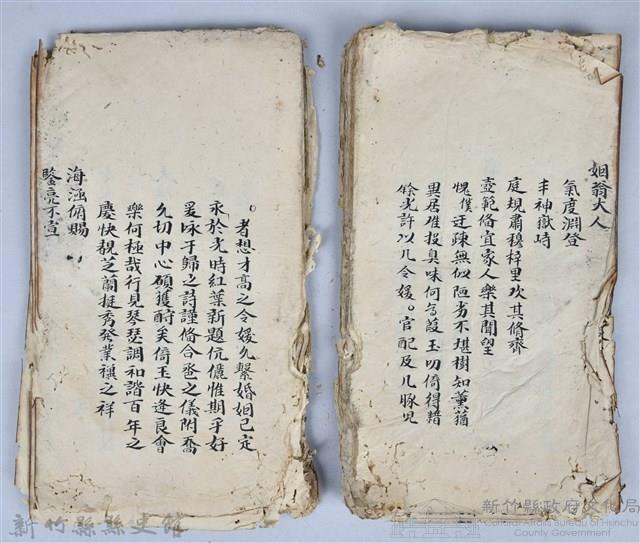 姻翁大人
氣度淵登
丰神嶽峙
庭規肅穆梓里欢其修齊
壼範俻宜家人樂其聞望
愧僕迂疎無似陋劣不堪樹知薰蕕
異居难投臭味何為葭玉叨倚得藉
餘光許以几令媛。官配及几豚児
。者想才高之令媛久繫婚姻已定
永於光時紅葉新題伉儷惟期乎好
爰咏于歸之詩謹俻合卺之儀附喬
久切中心碩獲酧矣倚玉快逢良會
樂何極哉行見琴瑟調和諧百年之
慶快覩芝蘭挺秀發業禩之祥
海涵俯賜
鑒亮不宣
新竹縣縣史館
新竹縣政府文化局
Cultural Affairs Bureau of Hsinchu
County Government